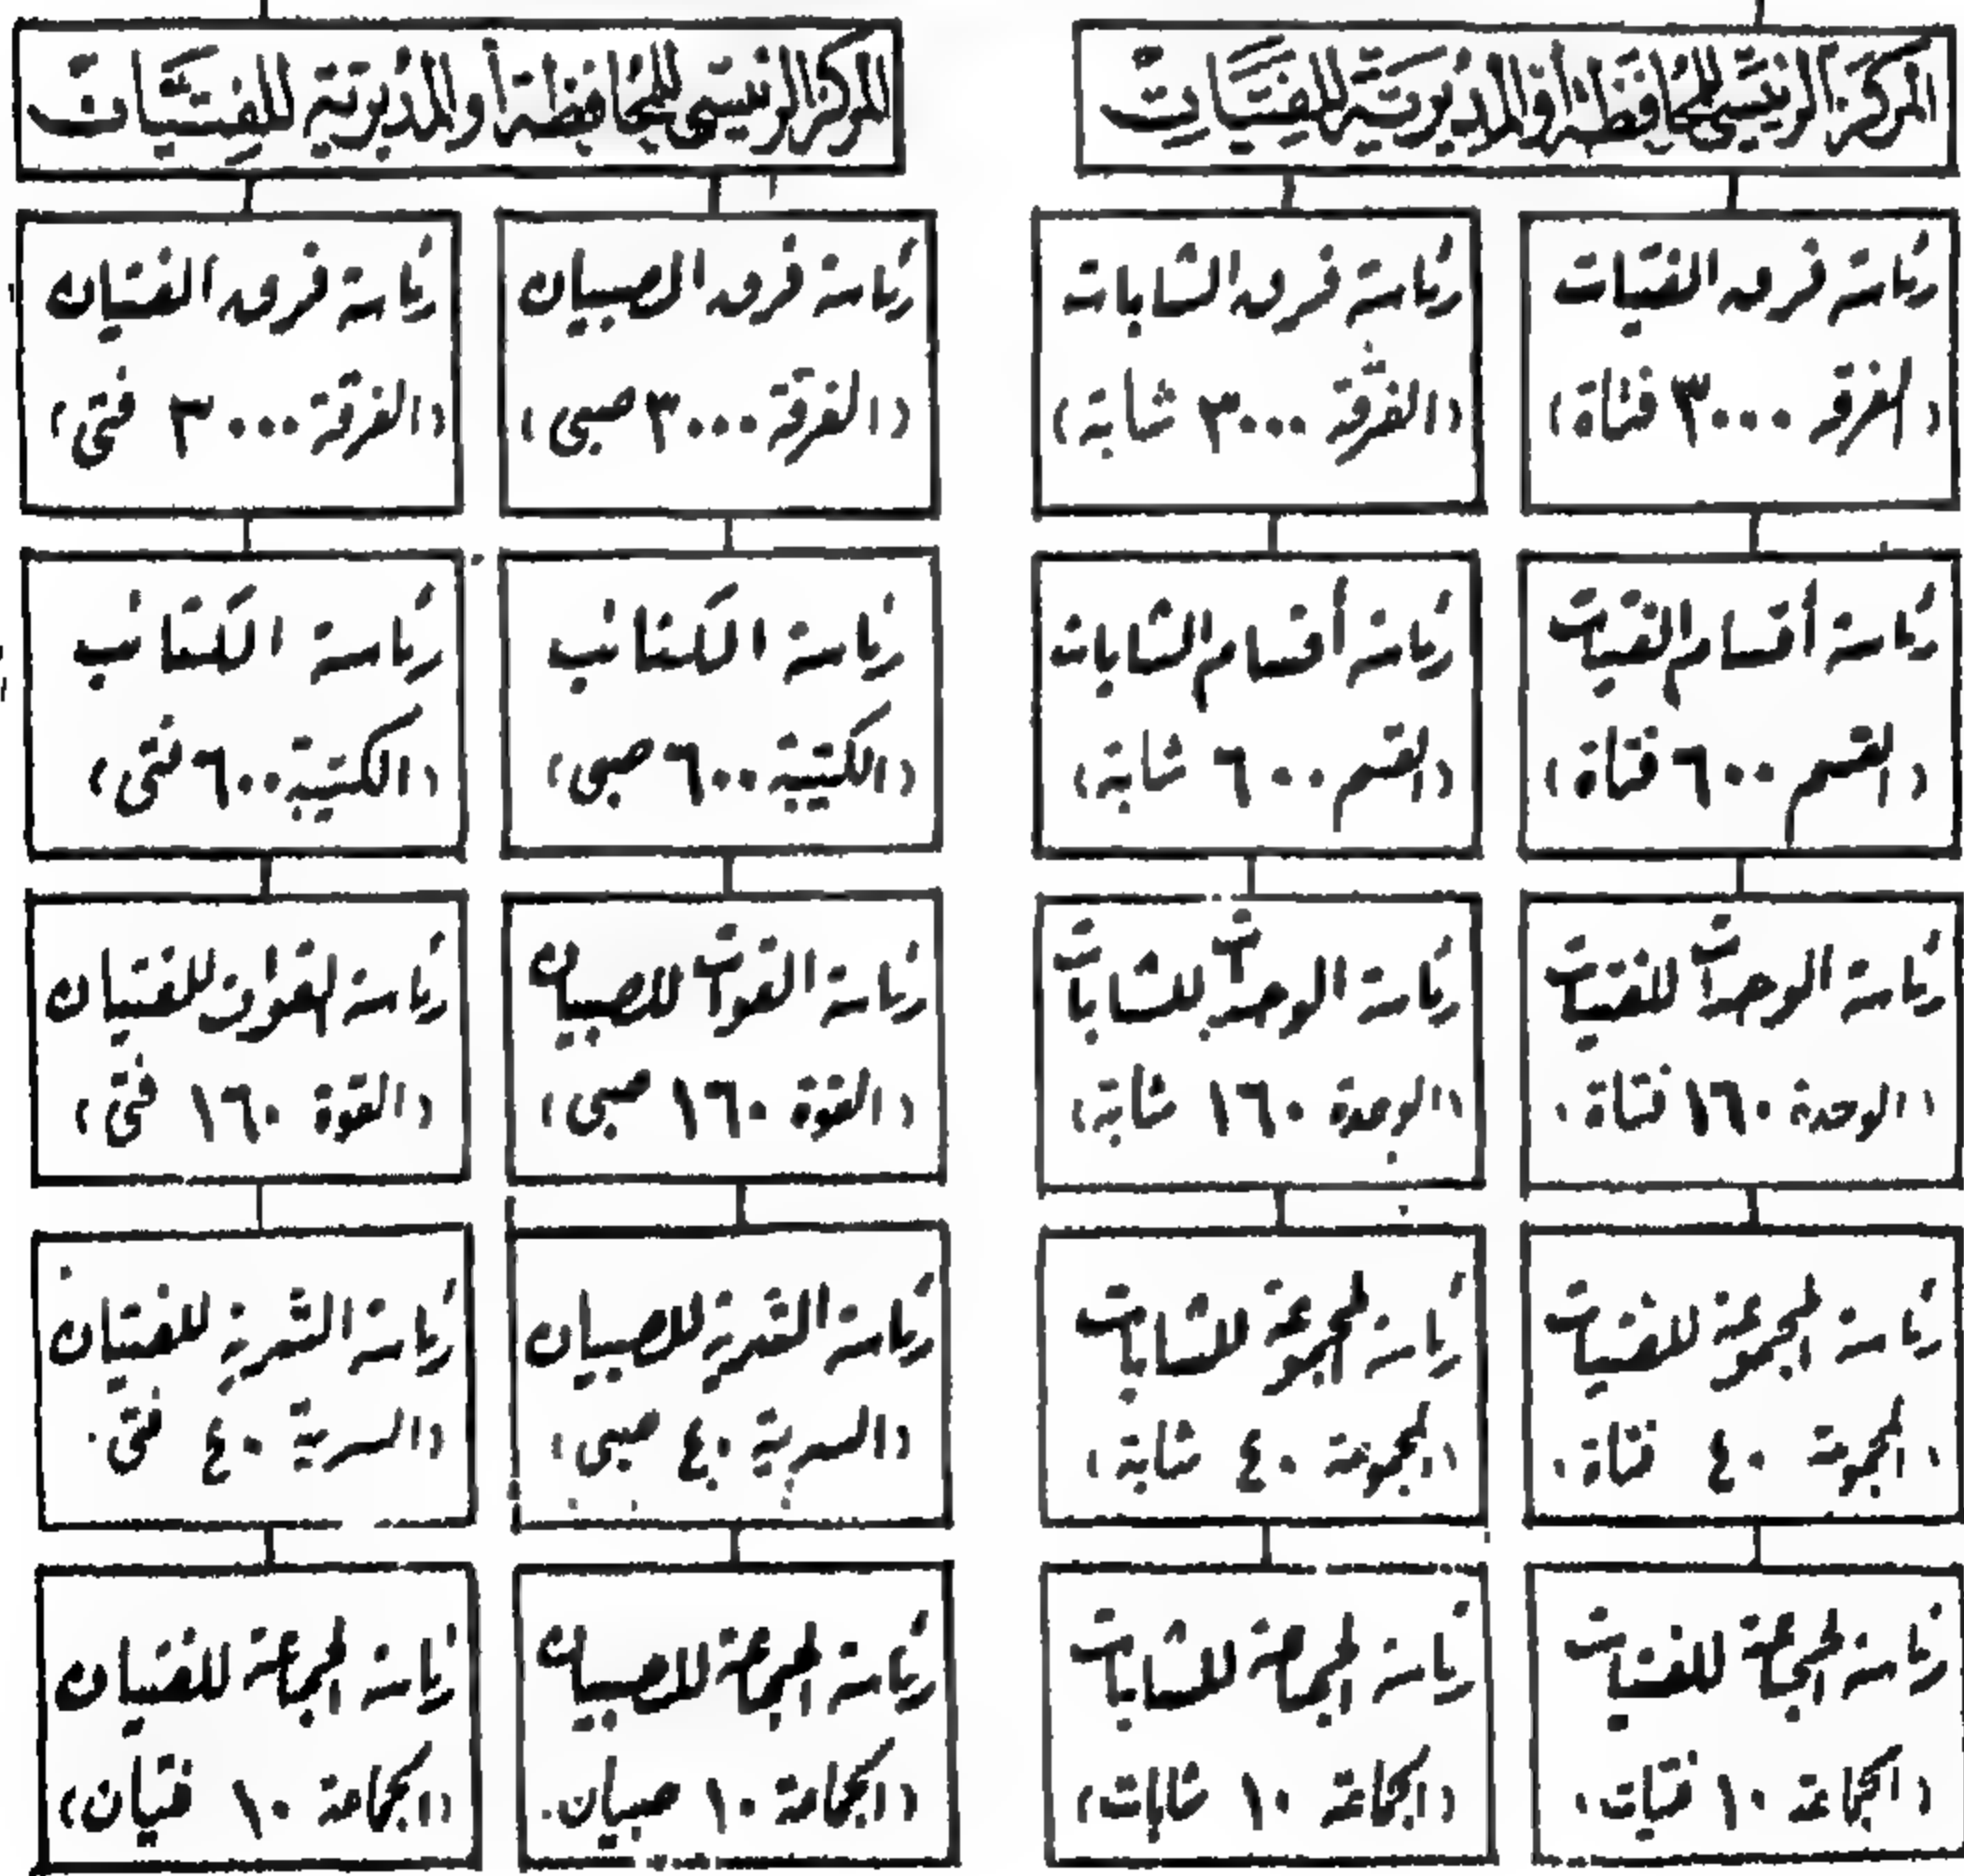 المركز الرئيسى للمحافظة أو المديرية للفتيات
رئاسة فرق الفتيات
(الفرقة ٣٠٠٠ فتاة)
رئاسة أقسام الفتيات
(القسم ٦٠٠ فتاة)
رئاسة الوحدات للفتيات
(الوحدة ١٦٠ فتاة)
رئاسة المجموعة للفتيات
(المجموعة ٤٠ فتاة)
رئاسة الجماعة للفتيات
(الجماعة ١٠ فتيات)
رئاسة فرق الشابات
(الفرقة ٣٠٠٠ شابة)
رئاسة أقسام الشابات
(القسم ٦٠٠ شابة)
رئاسة الوحدات للشابات
(الوحدة ١٦٠ شابة)
رئاسة المجموعة للشابات
(المجموعة ٤٠ شابة)
رئاسة الجماعة للشابات
(الجماعة ١٠ شابات)
المركز الرئيسى للمحافظة أو المديرية للفتيات
رئاسة فرق الصبيان
(الفرقة ٣٠٠٠ صبى)
رئاسة الكتائب
(الكتيبة ٦٠٠ صبى)
رئاسة القوات للصبيان
(القوة ١٦٠ صبى)
رئاسة السرية للصبيان
(السرية ٤٠ صبى)
رئاسة الجماعة للصبيان
(الجماعة ١٠ صبيان)
رئاسة فرق الفتيان
(الفرقة ٣٠٠٠ فتى)
رئاسة الكتائب
(الكتيبة ٦٠٠ فتى)
رئاسة القوات للفتيان
(القوة ١٦٠ فتى)
رئاسة السرية للفتيان
(السرية ٤٠ فتى)
رئاسة الجماعة للفتيان
(الجماعة ١٠ فتيان)